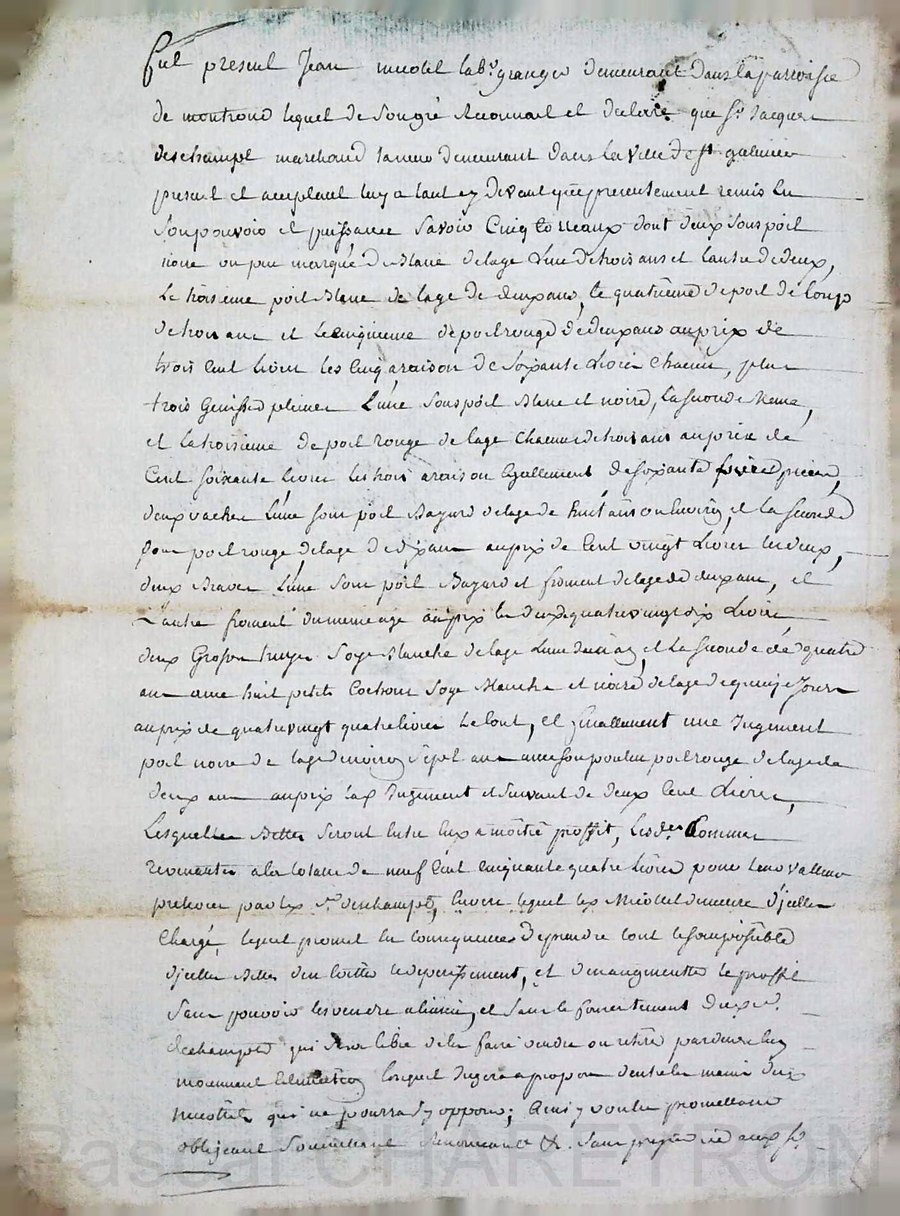 fut present Jean micolet lab.r granger demeurant dans la parroisse
de montrond lequel de son gré Reconnait et declare que S.r Jacques
deschampt marchand tanneur demeurant dans la ville de S.t galmier
present et acceptant luy a tant cy devant que presentement remis en
son pouvoir et puissance Savoir Cinq torreaux dont deux sous poil
noire un peu marqué de Blanc de lage L'une de trois ans et l'autre de deux,
Le troisieme poil Blanc de lage de deux ans, le quatrieme de poil de Loup
de trois ans et le cinquieme de poil rouge de deux ans au prix de
trois Cent Livres les Cinq a raison de Soixante Livres Chacun, plus
trois Genisses pleines L'une Sous poil Blanc et noire, La Seconde
et La troisieme de poil rouge de lage Chacune de trois ans au prix de
Cent Soixante Livres les trois a raison Egallement de Soixante
deux vaches L'une sous poil Bayard de lage de huit ans ou Environ, et la seconde
sous poil rouge de lage de dix ans au prix de Cent vingt Livres les deux,
deux Braves L'une Sous poil Bayard et froment de lage de deux ans, et
L'autre froment du meme age au prix les deux quatre vingt dix Livres
deux Grosses truyes Soye Blanche de lage L'une et La Seconde de quatre
ans avec huit petits Cochons Soye Blanche et noire de lage de quinze Jours
au prix de quatre vingt quatre livres Le tout, et finallement une Jugement
poil noire de lage denviron Sept ans avec son poulin poil rouge de lage de
deux ans au prix la d. Jugement et Suivant de deux Cent Livres,
Lesquelles Bettes Seront Entre Eux a moitié proffit, Les d.es Sommes
revenantes a la totalle de neuf Cent Cinquante quatre Livres pour leur valleur
par les S.r deschampt, Envers lequel les Micollet demeure d'jcelles
Chargé, lequel promet En Consequence de prendre tout le Soin possible
d'jcelles Bettes d'en Eviter le deperissement, et d'en augmenter le proffit
Sans pouvoir les vendre n'aliener, et Sans le Consentement dudit S.r
deschampt qui Sera libre de les faire vendre ou retirer pardevers luy
moyennant Estimation lorsquil Jugera a propos d'entre les mains dud.
micollet qui ne pourra s'y opposer; Ainsi voulu promettant
obligeant Soumettant Renonceant &. Sans prejudice aux S.r
Pascal CHAREYRON